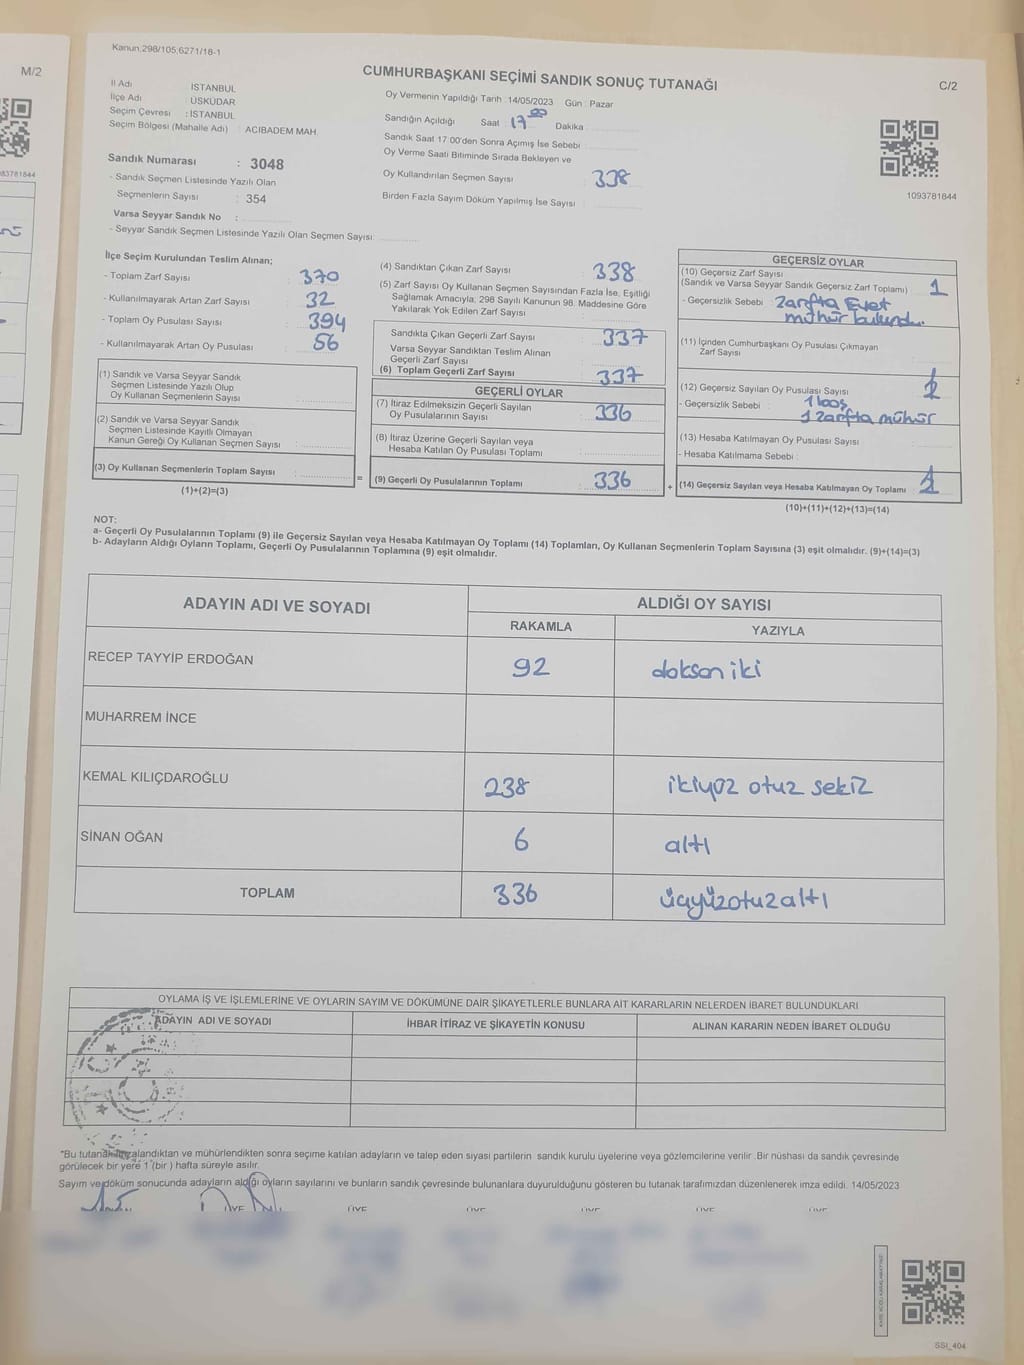 M/2
83781844
Kanun;298/105;6271/18-1
CUMHURBAŞKANI SEÇİMİ SANDIK SONUÇ TUTANAĞI
C/2
İl Adı : İSTANBUL
İlçe Adı : ÜSKÜDAR
Seçim Çevresi : İSTANBUL
Seçim Bölgesi (Mahalle Adı) : ACIBADEM MAH.
Oy Vermenin Yapıldığı Tarih :14/05/2023 Gün : Pazar
Sandığın Açıldığı Saat 17 00 Dakika
Sandık Saat 17:00'den Sonra Açımış İse Sebebi
Oy Verme Saati Bitiminde Sırada Bekleyen ve
Oy Kullandırılan Seçmen Sayısı 338
Birden Fazla Sayım Döküm Yapılmış İse Sayısı
1093781844
Sandık Numarası : 3048
- Sandık Seçmen Listesinde Yazılı Olan
Seçmenlerin Sayısı : 354
Varsa Seyyar Sandık No :
- Seyyar Sandık Seçmen Listesinde Yazılı Olan Seçmen Sayısı:
İlçe Seçim Kurulundan Teslim Alınan;
- Toplam Zarf Sayısı : 370
- Kullanılmayarak Artan Zarf Sayısı : 32
- Toplam Oy Pusulası Sayısı : 394
- Kullanılmayarak Artan Oy Pusulası : 56
(1) Sandık ve Varsa Seyyar Sandık
Seçmen Listesinde Yazılı Olup
Oy Kullanan Seçmenlerin Sayısı :
(2) Sandık ve Varsa Seyyar Sandık
Seçmen Listesinde Kayıtlı Olmayan
Kanun Gereği Oy Kullanan Seçmen Sayısı :
(3) Oy Kullanan Seçmenlerin Toplam Sayısı :
(1)+(2)=(3)
=
(4) Sandıktan Çıkan Zarf Sayısı : 338
(5) Zarf Sayısı Oy Kullanan Seçmen Sayısından Fazla İse, Eşitliği
Sağlamak Amacıyla; 298 Sayılı Kanunun 98. Maddesine Göre
Yakılarak Yok Edilen Zarf Sayısı
Sandıkta Çıkan Geçerli Zarf Sayısı : 337
Varsa Seyyar Sandıktan Teslim Alınan
Geçerli Zarf Sayısı
(6) Toplam Geçerli Zarf Sayısı : 337
GEÇERLİ OYLAR
(7) İtiraz Edilmeksizin Geçerli Sayılan
Oy Pusulalarının Sayısı : 336
(8) İtiraz Üzerine Geçerli Sayılan veya
Hesaba Katılan Oy Pusulası Toplamı
(9) Geçerli Oy Pusulalarının Toplamı : 336
+
GEÇERSİZ OYLAR
(10) Geçersiz Zarf Sayısı
(Sandık ve Varsa Seyyar Sandık Geçersiz Zarf Toplamı) : 1
- Geçersizlik Sebebi : Zarfta Evet
mühür bulundu.
(11) İçinden Cumhurbaşkanı Oy Pusulası Çıkmayan
Zarf Sayısı
(12) Geçersiz Sayılan Oy Pusulası Sayısı
- Geçersizlik Sebebi : 1 boş
1 zarfta mühür
(13) Hesaba Katılmayan Oy Pusulası Sayısı
- Hesaba Katılmama Sebebi
(14) Geçersiz Sayılan veya Hesaba Katılmayan Oy Toplamı
(10)+(11)+(12)+(13)=(14)
NOT:
a- Geçerli Oy Pusulalarının Toplamı (9) ile Geçersiz Sayılan veya Hesaba Katılmayan Oy Toplamı (14) Toplamları, Oy Kullanan Seçmenlerin Toplam Sayısına (3) eşit olmalıdır. (9)+(14)=(3)
b- Adayların Aldığı Oyların Toplamı, Geçerli Oy Pusulalarının Toplamına (9) eşit olmalıdır.
ADAYIN ADI VE SOYADI
ALDIĞI OY SAYISI
RAKAMLA YAZIYLA
RECEP TAYYİP ERDOĞAN 92 doksan iki
MUHARREM İNCE
KEMAL KILIÇDAROĞLU 238 ikiyüz otuz sekiz
SİNAN OĞAN 6 altı
TOPLAM 336 üçyüzotuzaltı
OYLAMA İŞ VE İŞLEMLERİNE VE OYLARIN SAYIM VE DÖKÜMÜNE DAİR ŞİKAYETLERLE BUNLARA AİT KARARLARIN NELERDEN İBARET BULUNDUKLARI
ADAYIN ADI VE SOYADI İHBAR İTİRAZ VE ŞİKAYETİN KONUSU ALINAN KARARIN NEDEN İBARET OLDUĞU
*Bu tutanak imzalandıktan ve mühürlendikten sonra seçime katılan adayların ve talep eden siyasi partilerin sandık kurulu üyelerine veya gözlemcilerine verilir. Bir nüshası da sandık çevresinde
görülecek bir yere 1 (bir) hafta süreyle asılır.
Sayım ve döküm sonucunda adayların aldığı oyların sayılarını ve bunların sandık çevresinde bulunanlara duyurulduğunu gösteren bu tutanak tarafımızdan düzenlenerek imza edildi. 14/05/2023
ÜYE ÜYE ÜYE ÜYE ÜYE ÜYE
SSI_404